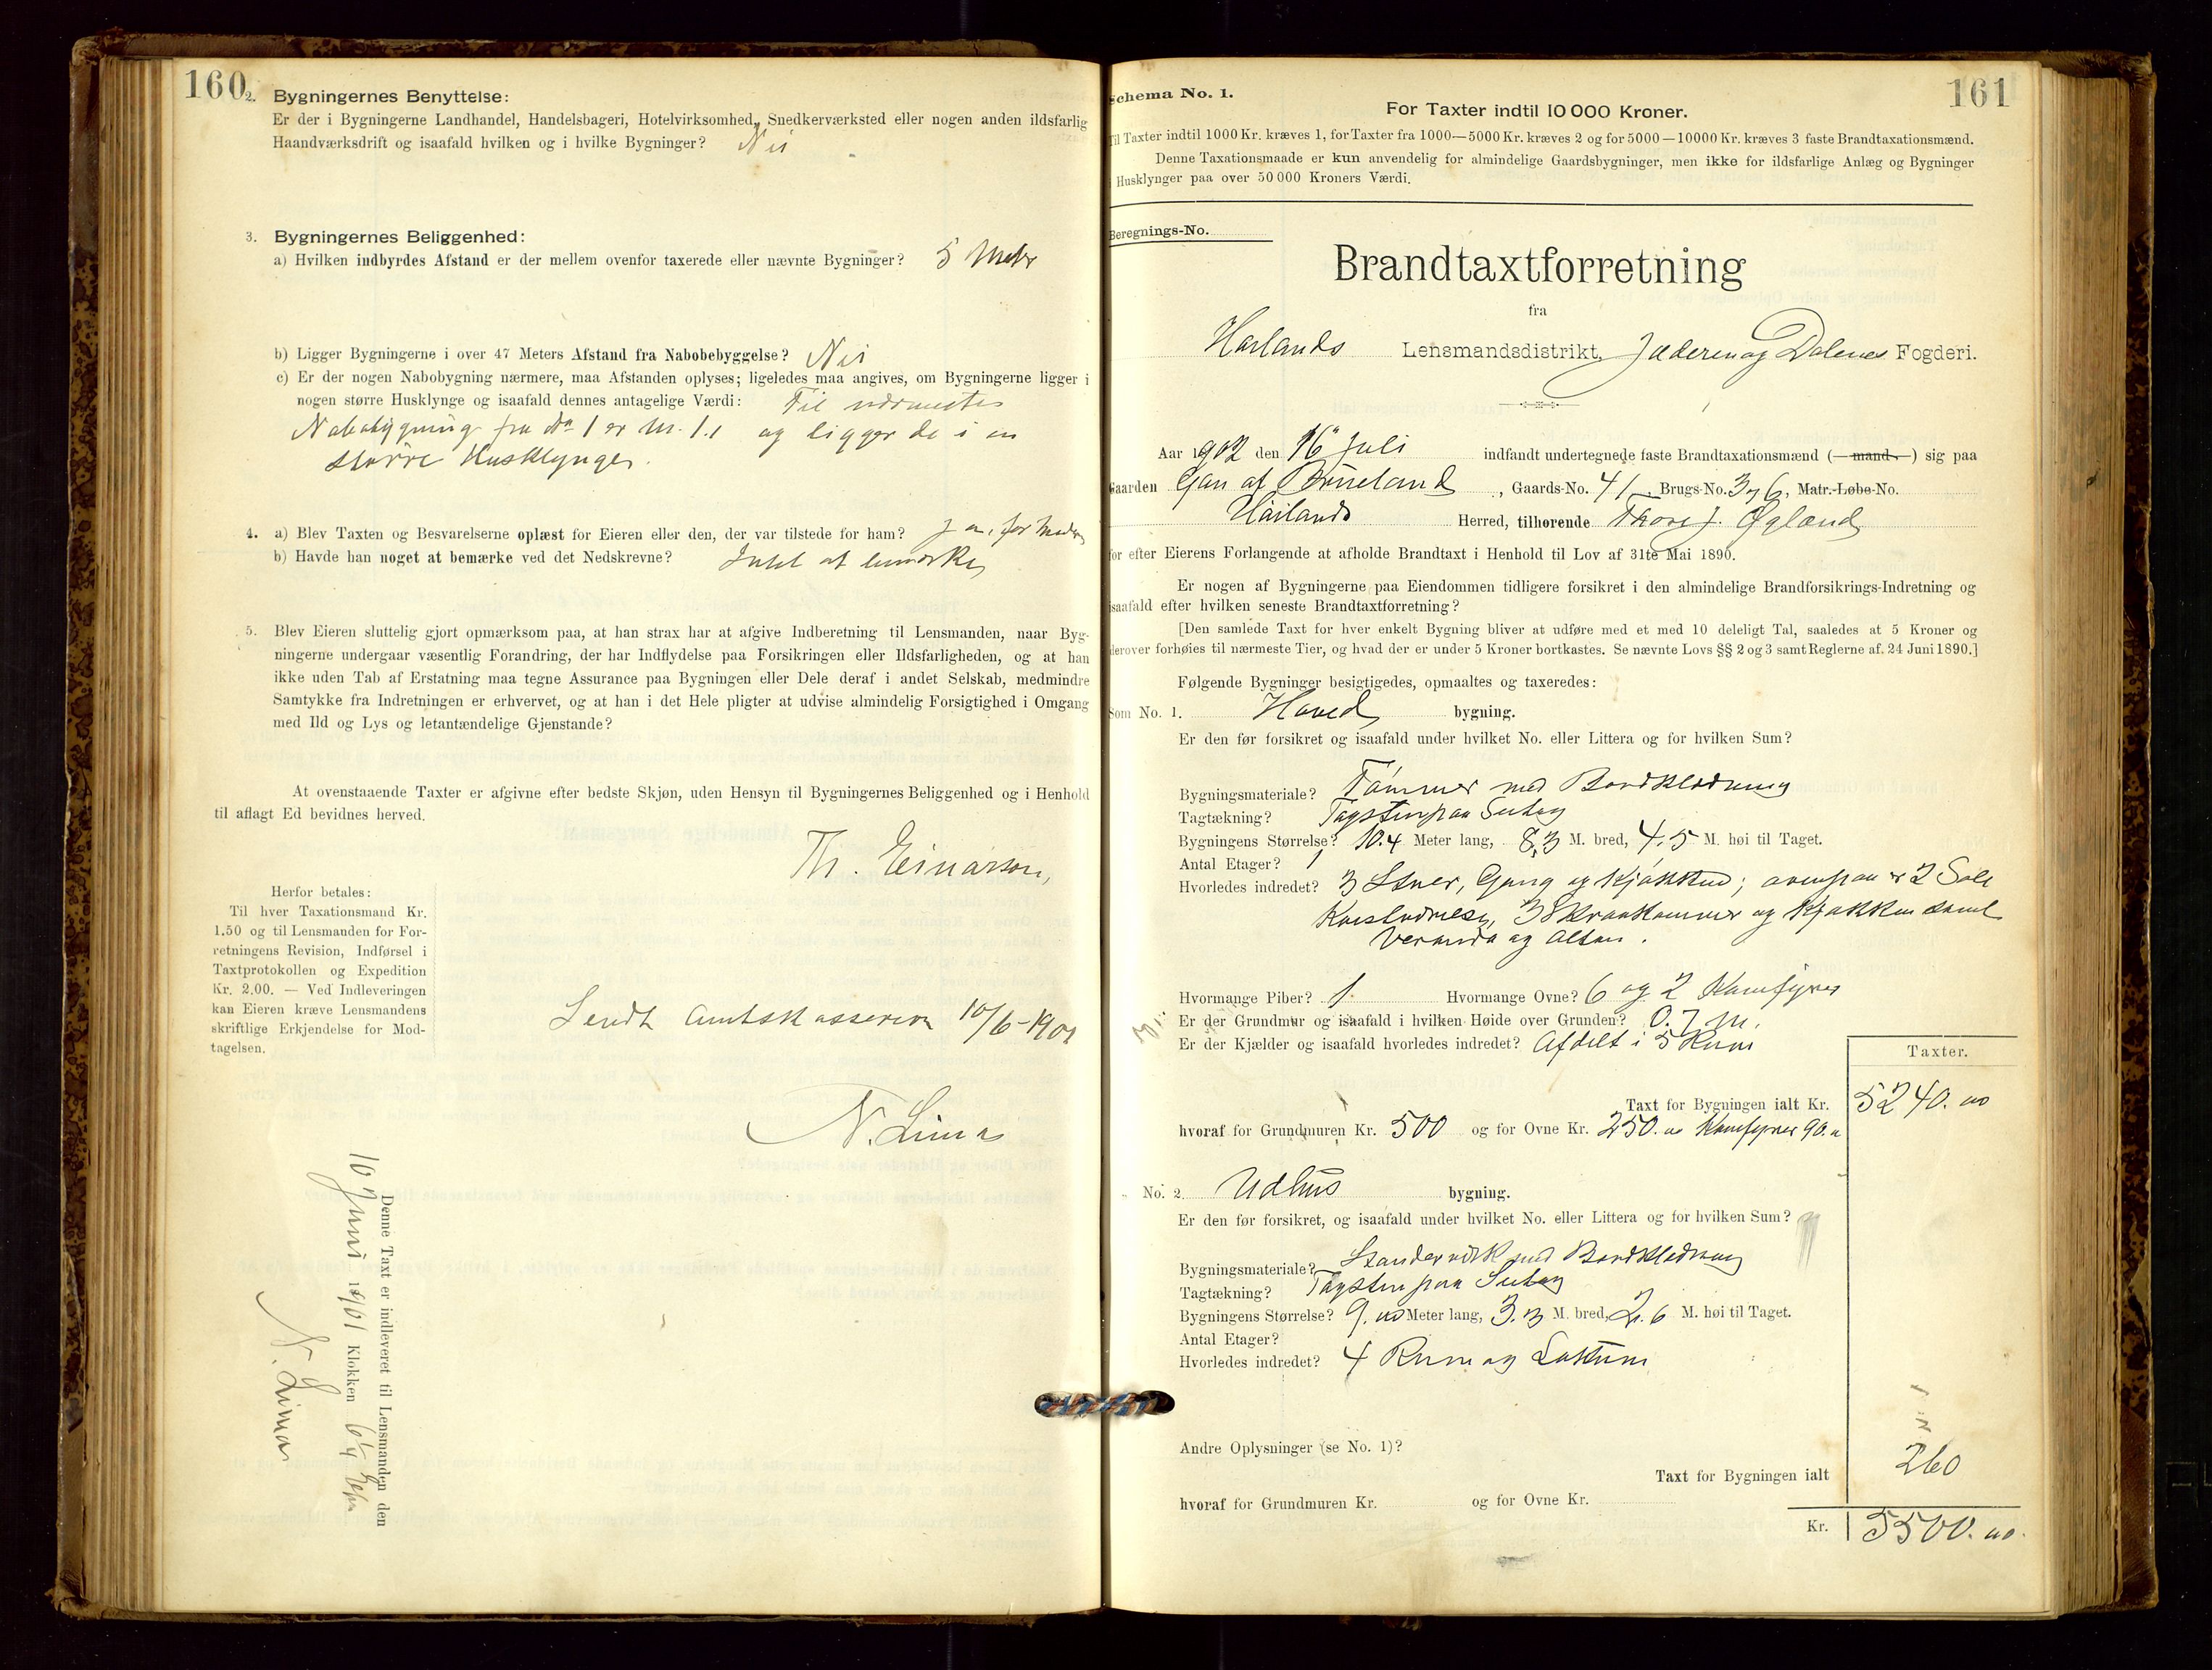 160
2. Bygningernes Benyttelse:
Er der i Bygningerne Landhandel, Handelsbageri, Hotelvirksomhed, Snedkerværksted eller nogen anden ildsfarlig
Haandværksdrift og isaafald hvilken og i hvilke Bygninger? Nei
3. Bygningernes Beliggenhed:
a) Hvilken indbyrdes Afstand er der mellem ovenfor taxerede eller nævnte Bygninger? 5 Meter
b) Ligger Bygningerne i over 47 Meters Afstand fra Nabobebyggelse? Nei
c) Er der nogen Nabobygning nærmere, maa Afstanden oplyses; ligeledes maa angives, om Bygningerne ligger i
nogen større Husklynge og isaafald dennes antagelige Værdi: Til nærmeste
Nabobygning fra No 1 er M. 1.1 og ligger de i en
større Husklynge.
4. a) Blev Taxten og Besvarelserne oplæst for Eieren eller den, der var tilstede for ham? Ja, for
b) Havde han noget at bemærke ved det Nedskrevne? Intet at bemærke
5. Blev Eieren sluttelig gjort opmærksom paa, at han strax har at afgive Indberetning til Lensmanden, naar Byg-
ningerne undergaar væsentlig Forandring, der har Indflydelse paa Forsikringen eller Ildsfarligheden, og at han
ikke uden Tab af Erstatning maa tegne Assurance paa Bygningen eller Dele deraf i andet Selskab, medmindre
Samtykke fra Indretningen er erhvervet, og at han i det Hele pligter at udvise almindelig Forsigtighed i Omgang
med Ild og Lys og letantændelige Gjenstande?
At ovenstaaende Taxter er afgivne efter bedste Skjøn, uden Hensyn til Bygningernes Beliggenhed og i Henhold
til aflagt Ed bevidnes herved.
Th. Einarson,
Herfor betales:
Til hver Taxationsmand Kr.
1.50 og til Lensmanden for For-
retningens Revision, Indførsel i
Taxtprotokollen og Expedition
Kr. 2.00. — Ved Indleveringen
kan Eieren kræve Lensmandens
skriftlige Erkjendelse for Mod-
tagelsen.
Sendt Amtskasseren 10/6-1901
N. Lima
Denne Taxt er indleveret til Lensmanden den
10 Juni 1901 Klokken 6 1/4 Efm
N. Lima
161
Schema No. 1.
For Taxter indtil 10 000 Kroner.
Til Taxter indtil 1000 Kr. kræves 1, for Taxter fra 1000—5000 Kr. kræves 2 og for 5000—10000 Kr. kræves 3 faste Brandtaxationsmænd.
Denne Taxationsmaade er kun anvendelig for almindelige Gaardsbygninger, men ikke for ildsfarlige Anlæg og Bygninger
i Husklynger paa over 50 000 Kroners Værdi.
Beregnings-No.
Brandtaxtforretning
fra
Haalands Lensmandsdistrikt, Jæderen og Dalenes Fogderi.
Aar 1902 den 16 Juli indfandt undertegnede faste Brandtaxationsmænd (—mand—) sig paa
Gaarden Gan af Brueland, Gaards-No. 41, Brugs-No. 376, Matr.-Løbe-No.
Haalands Herred, tilhørende Thore J. Øgland
for efter Eierens Forlangende at afholde Brandtaxt i Henhold til Lov af 31te Mai 1890.
Er nogen af Bygningerne paa Eiendommen tidligere forsikret i den almindelige Brandforsikrings-Indretning og
isaafald efter hvilken seneste Brandtaxtforretning?
[Den samlede Taxt for hver enkelt Bygning bliver at udføre med et med 10 deleligt Tal, saaledes at 5 Kroner og
derover forhøies til nærmeste Tier, og hvad der er under 5 Kroner bortkastes. Se nævnte Lovs §§ 2 og 3 samt Reglerne af 24 Juni 1890.]
Følgende Bygninger besigtigedes, opmaaltes og taxeredes:
Som No. 1. Hoved bygning.
Er den før forsikret og isaafald under hvilket No. eller Littera og for hvilken Sum?
Bygningsmateriale? Tømmer med Bordklædning
Tagtækning? Tagsten paa Sutag
Bygningens Størrelse? 10.4 Meter lang, 8,3 M. bred, 4.5 M. høi til Taget.
Antal Etager? 1
Hvorledes indredet? 3 Stuer, Gang og Kjøkken; ovenpaa er 2 Sale
3 Skraakammer og Kjøkken samt
Veranda og Altan.
Hvormange Piber? 1 Hvormange Ovne? 6 og 2 Komfyrer
Er der Grundmur og isaafald i hvilken Høide over Grunden? 0.7 M.
Er der Kjælder og isaafald hvorledes indredet? Afdelt i 5 Rum
Taxter.
Taxt for Bygningen ialt Kr. 5240.00
hvoraf for Grundmuren Kr. 500 og for Ovne Kr. 250.00 Komfyrer 90.00
No. 2. Udhus bygning.
Er den før forsikret, og isaafald under hvilket No. eller Littera og for hvilken Sum?
Bygningsmateriale? Standerverk med Bordklædning
Tagtækning? Tagsten paa Sutag
Bygningens Størrelse? 9.00 Meter lang, 3.3 M. bred, 2.6 M. høi til Taget.
Antal Etager?
Hvorledes indredet? 4 Rum og Lokum
Andre Oplysninger (se No. 1)?
Taxt for Bygningen ialt 260
hvoraf for Grundmuren Kr. og for Ovne Kr.
Kr. 5500.00.